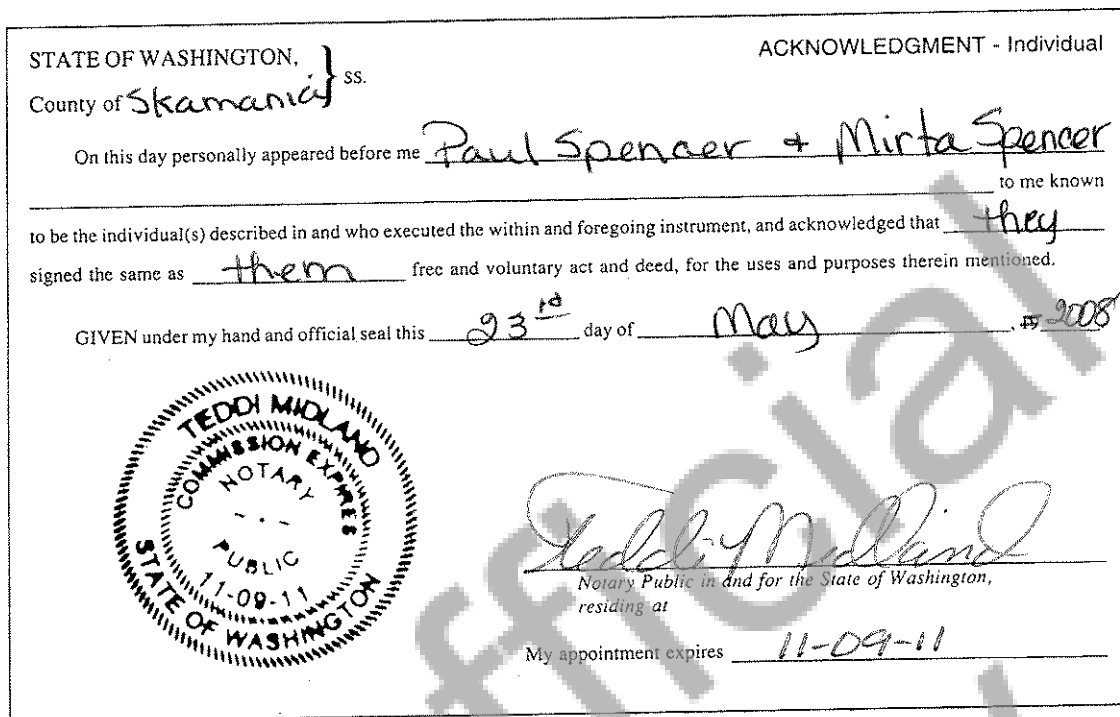 STATE OF WASHINGTON,
ACKNOWLEDGMENT - Individual
ss.
County of Skamania
On this day personally appeared before me Paul Spencer + Mirta Spencer
to me known
to be the individual(s) described in and who executed the within and foregoing instrument, and acknowledged that they
signed the same as them free and voluntary act and deed, for the uses and purposes therein mentioned.
GIVEN under my hand and official seal this 23rd day of May, 2008
TEDDI MIDLAND
COMMISSION EXPIRES
NOTARY
PUBLIC
11-09-11
STATE OF WASHINGTON
Teddi Midland
Notary Public in and for the State of Washington,
residing at
My appointment expires 11-09-11
fficial